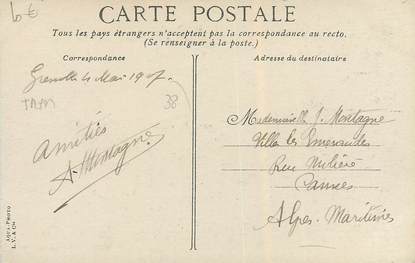 6€
CARTE POSTALE
Tous les pays étrangers n'acceptent pas la correspondance au recto.
(Se renseigner à la poste.)
Correspondance
Adresse du destinataire
Grenoble 4 Mai 1907.
38
Amitiés
A. Montagne
Mademoiselle J. Montagne
Villa les Emeraudes
Rue
Cannes
Alpes-Maritimes
AQUA-PHOTO
L.V. & Cie